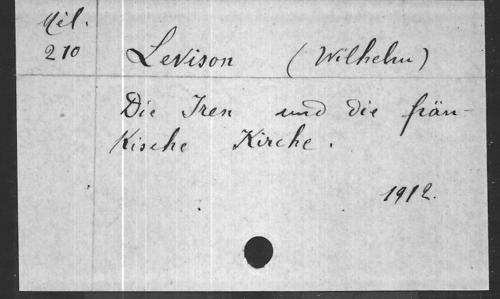 Mél.
210
Levison (Wilhelm)
Die Iren und die frän-
kische Kirche.
1912.